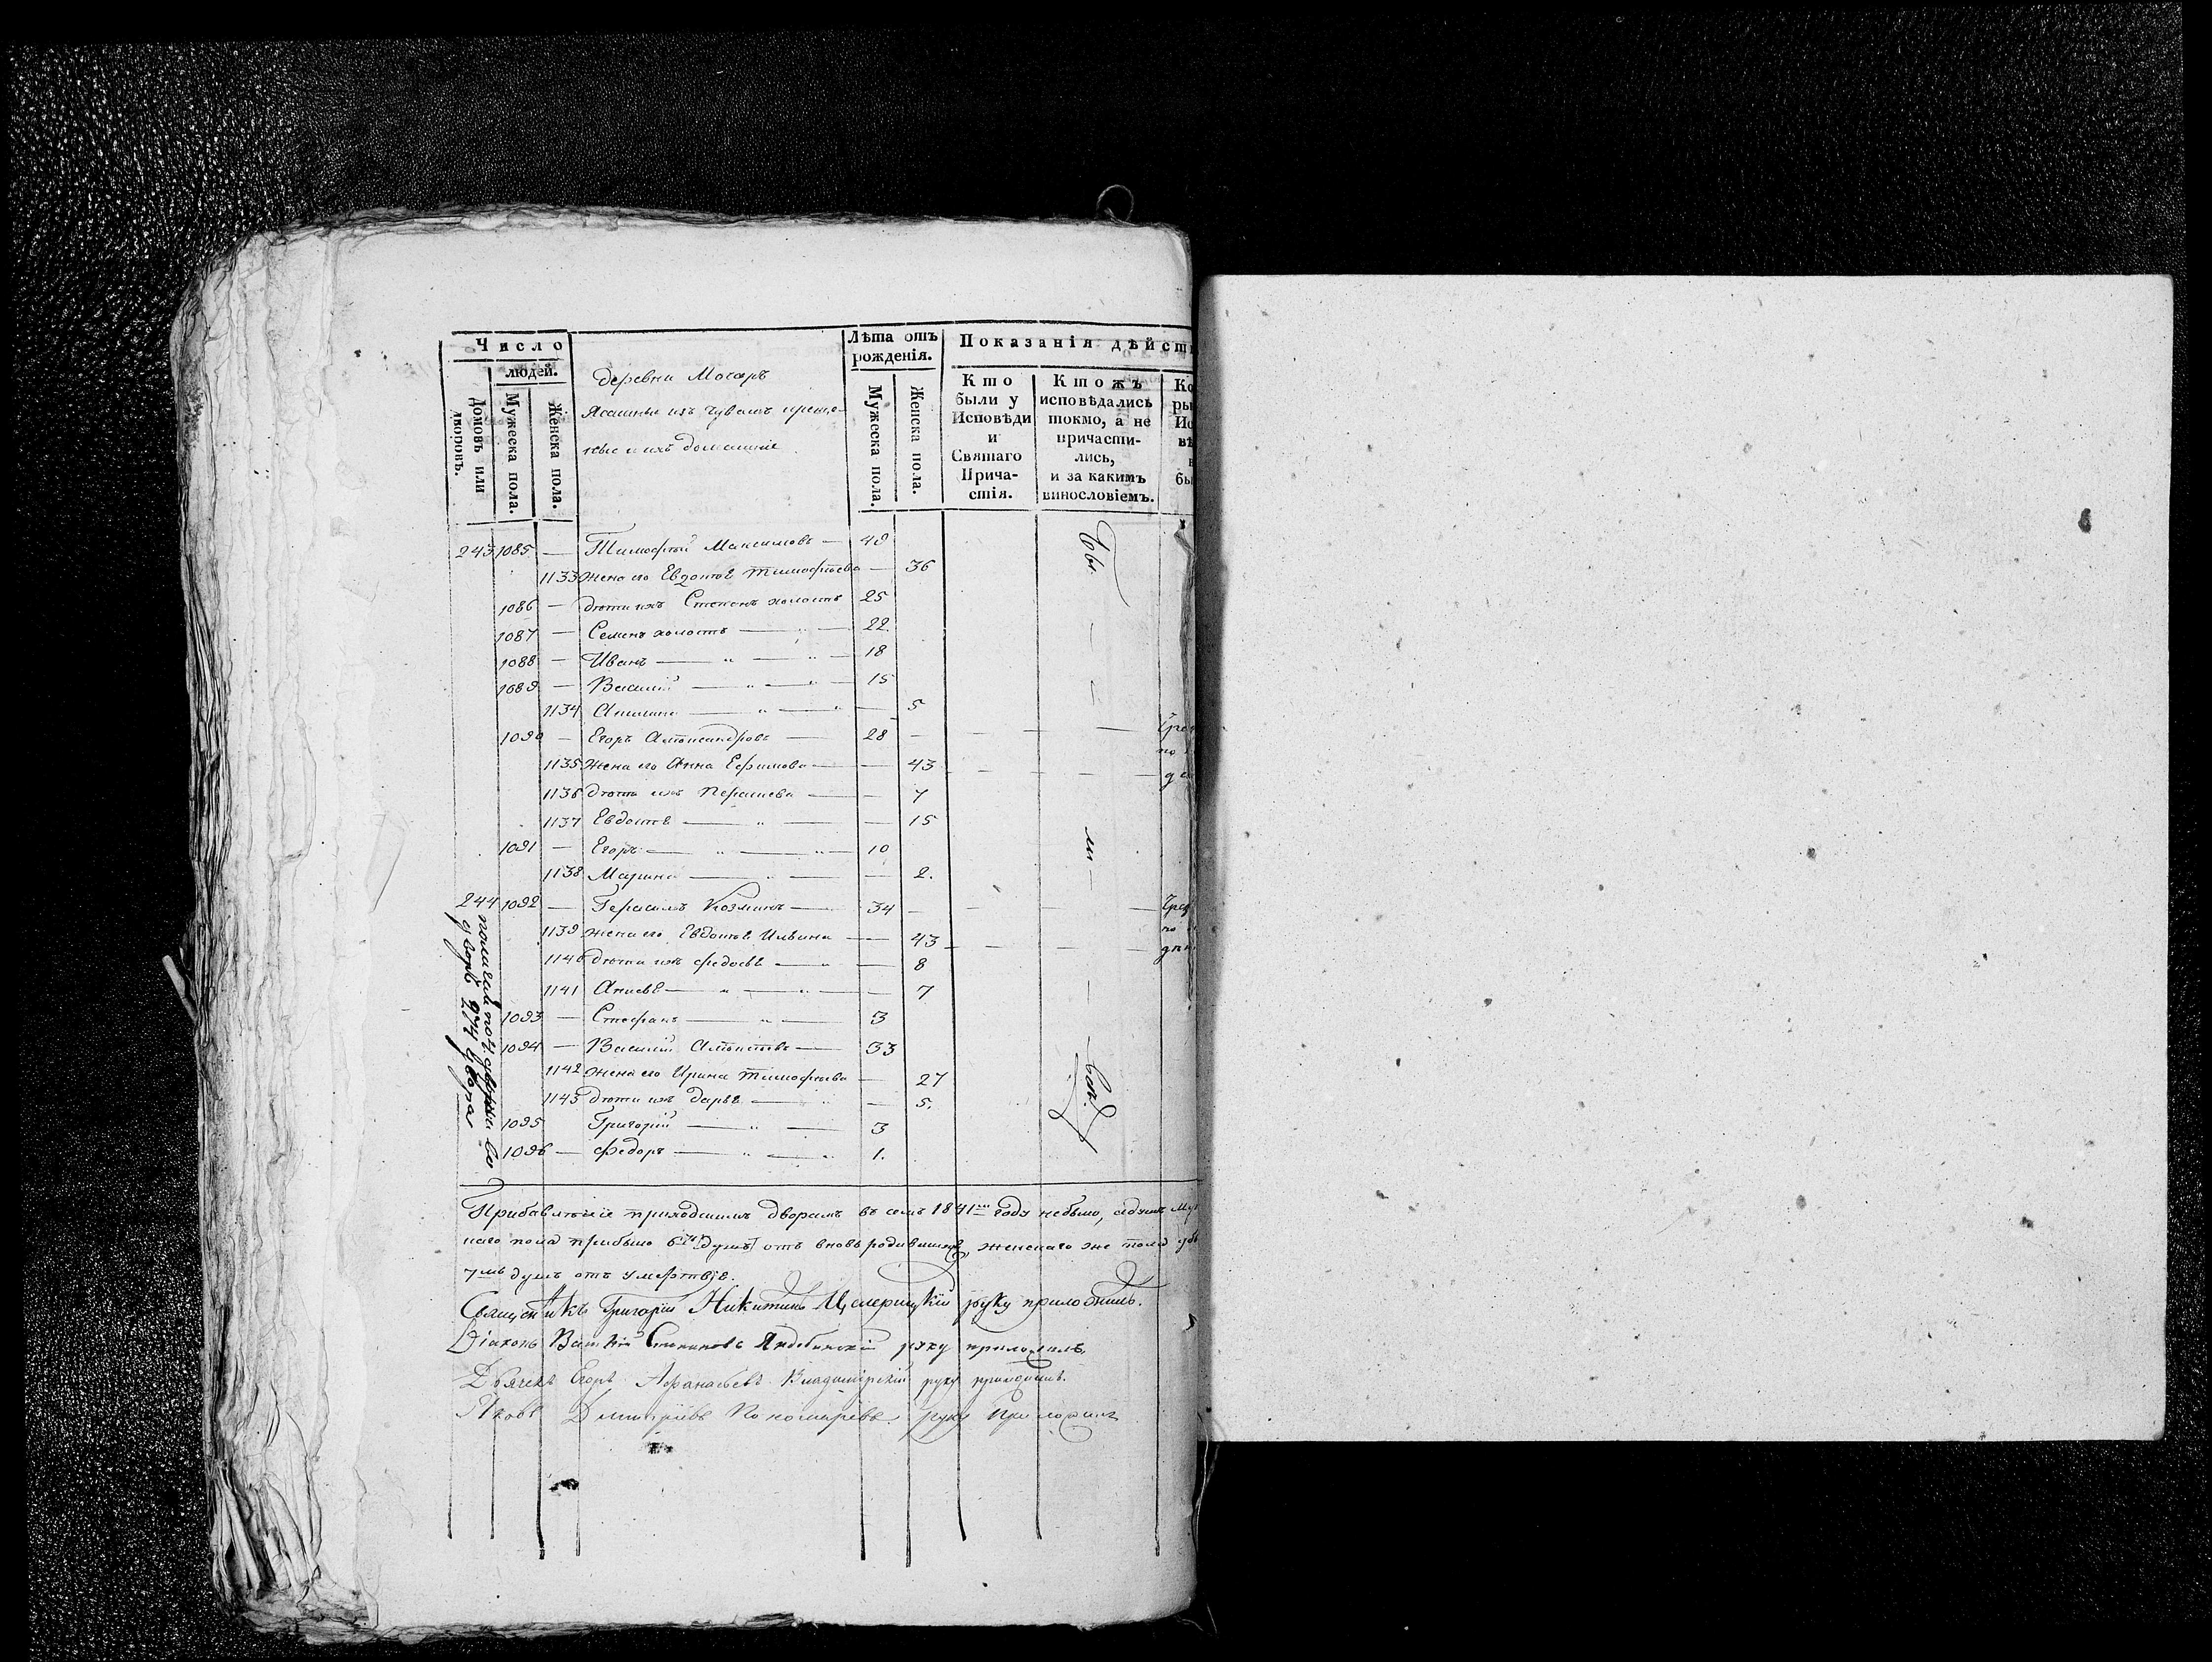 Число
людей.
Домовъ или дворовъ.
Мужеска пола.
Женска пола.
деревни Мочаръ
Ясашные изъ чувашъ креще-
ные и ихъ домашніе
Лѣта отъ рожденія.
Мужеска пола.
Женска пола.
Показанія дѣйст
Кто были у Исповѣди и Святаго Прича-стія.
Ктожъ исповѣдались токмо, а не причасти-лись, и за какимъ винословіемъ.
243 1085 — Тимофѣй Максимовъ — 49
1133 Жена его Евдотья Тимофѣева — 36
1086 — дѣти ихъ Степанъ холостъ 25
1087 — Семенъ холостъ — 22
1088 — Иванъ — „ — „ — 18
1089 — Василій — „ — „ — 15
1134 — „ — „ — 5
1090 — Егоръ Александровъ — 28 —
1135 Жена его Анна Ефимова — — 43
1136 дѣти ихъ — — 7
1137 Евдотья — „ — — 15
1091 — Егоръ — „ — „ — 10
1138 Марина — „ — — 2.
244 1092 — Герасимъ Козминъ — 34 —
1139 жена его Евдотья Ильина — 43
1140 дѣти ихъ Федосья — „ — 8
1141 Анисья — „ — „ — 7
1093 — Стефанъ — „ — 3
1094 — Василій — 33
1142 жена его Ирина Тимофѣева — 27
1143 дѣти ихъ Дарья — „ — 5.
1095 Григорій — „ — 3
1096 — Федоръ — „ — „ 1.
Бы
ли
всѣ
Прибавленіе приходскимъ дворамъ въ семъ 1841мъ году небыло, а душъ Му
скаго пола прибыло 6ть душъ отъ вновь родившихся, женскаго же пола убы
7мь душъ отъ умертвія.
Священникъ Григорій Никитинъ руку приложилъ.
Діаконъ Василій руку приложилъ,
Дьячекъ Егоръ Афанасьевъ Владимірскій руку приложилъ.
Яковъ Дмитріевъ Пономаревъ руку приложилъ